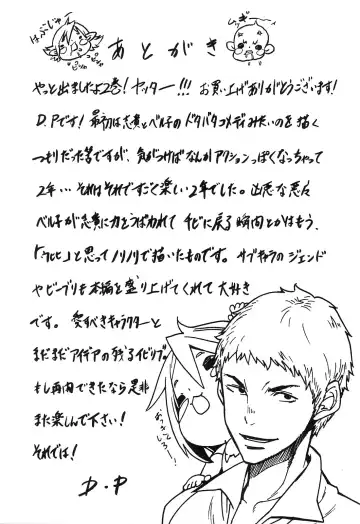 はぶじゃー
らぎー
あとがき
やっと出ましたよ2巻!ヤッター!!!お買い上げありがとうございます!
D.Pです!最初は忠貴とベル子のドタバタコメディみたいのを描く
つもりだった筈ですが、気がつけばなんかアクションっぽくなっちゃって
2年…それはそれですごく楽しい2年でした。凶悪な悪兵
ベル子が忠貴に力をうばわれて チビに戻る瞬間とかはもう、
と思ってノリノリで描いたものです。サブキャラのジェンド
やビーブリも本編を盛り上げてくれて大好き
です。愛すべきキャラクターと
まだまだアイデアの残るイビリブ
もし再開できたなら是非
また楽しんで下さい!
それでは!
D.P